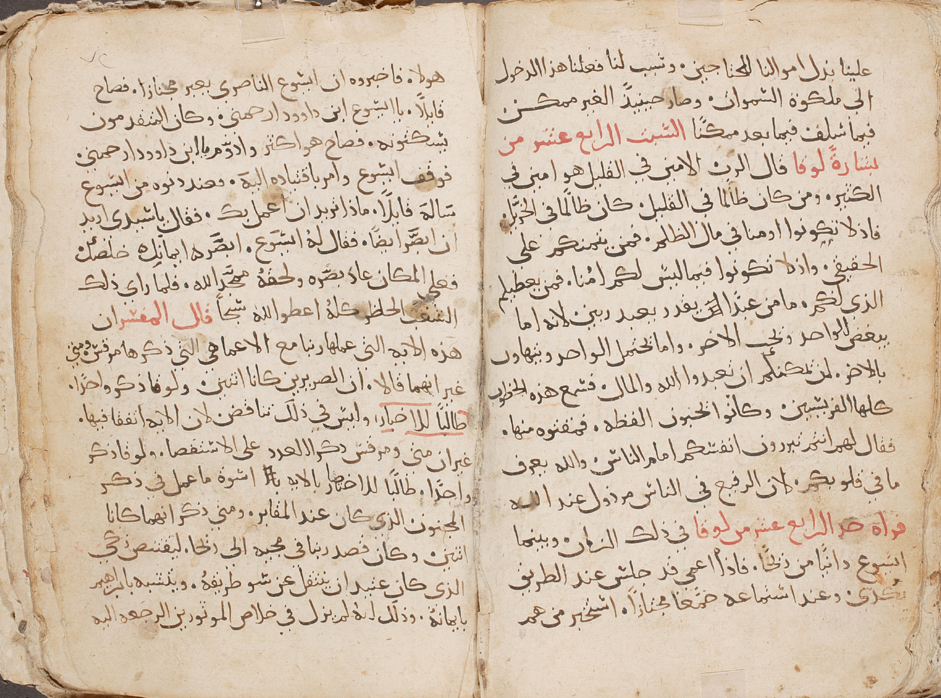 علينا بذل اموالنا للمحتاجين. وسبب لنا فعلنا هذا الدخول
الى ملكوة السموات. وصار حينيدٍ الغير ممكن
فيما سلف فيما بعد ممكنًا السبت الرابع عشر من
بشارة لوقا قال الرب الامين في القليل هو امين في
الكثير. ومن كان ظالمًا في القليل. كان ظالمًا في الجزيل.
فاذ لا تكونوا اومنا في مال الظلم. فمن يتمنكم على
الحقيقي. واذ لا تكونوا فيما ليس لكم اُمنا. فمن يعطيكم
الذي لكم. ما من عبدًا يقدر يعبد ربين لانه اما
يبغض الواحد ويحب الاخر. واما يحتمل الواحد ويتهاون
بالاخر. لن يمكنكم ان تعبدوا الله والمال. فسمع هذه الخطوب
كلها الفريسيين. وكانوا يحبون الفظة. فمقتوه منها.
فقال لهم انتم تبررون انفسكم امام الناس. والله يعرف
ما في قلوبكم. لان الرفيع في الناس مردول عند الله
قراة حد الرابع عشر من لوقا في ذلك الزمان. وبينما
ايسوع داتيًا من ريحًا. فاذا اعمى قد جلس عند الطريق
يكدي. وعند استماعه جمعًا مجتازًا. استخبر من هم
هولا. فاخبروه ان ايسوع الناصري يعبر مجتازا. فصاح
قايلًا. يا ايسوع ابن داوود ارحمني. وكان المتقدمون
يسكتونه. فصاح هو اكثر وازود يا ابن داوود ارحمني.
فوقف ايسوع وامر باقتياده اليه. فعند دنوه من ايسوع
ساله قايلًا. ماذا تريد ان اعمل بك. فقال يا سيدي اريد
ان ابصر ايضًا. فقال له ايسوع. ابصر ايمانك خلصك
فعلى المكان عاد بصره ولحقهُ ممجدًا لله. فلما راى ذلك
الشعب الحاظر كلهُ اعطوا لله سبحًا قال المفسر ان
هذه الايه التي عملها ربنا مع الاعما هي التي ذكرها مرقس ومتى
غير انهما قالا. ان الضريرين كانا اثنين. ولوقا ذكر واحدًا.
طالبًا للاختصار. وليس في ذلك تناقض لان الايه اتفقا فيها.
غير ان متى ومرقس ذكرا العدد على الاستقصا. ولوقا ذكر
واحدًا. طالبًا للاختصار بالايه اسوة ما عمل في ذكر
المجنون الذي كان عند المقابر. ومتى ذكر انهما كانا
اثنين. وكان قصد ربنا في مجيه الى ريحا. ليقتنص زكى
الذي كان عتيد ان ينتقل عن سو طريقهُ. ويتشبه بابراهيم
بايمانهُ. وذلك انهُ لم يزل في خلاص الموثورين الرجعه اليه